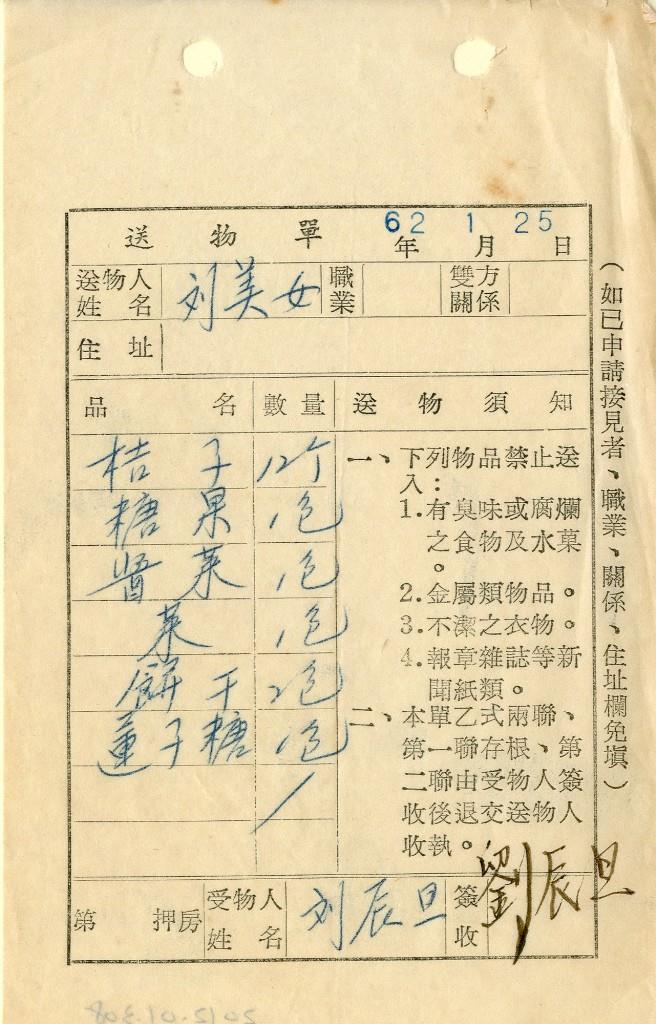 送物單 62年 1月 25日
送物人姓名 刘美女 職業 雙方關係
住址
品名 數量 送物須知
桔子 12个
糖果 1包
醬菜 1包
菜 1包
餅干 2包
蓮子糖 1包
一、下列物品禁止送
入:
1.有臭味或腐爛
之食物及水菓
。
2.金屬類物品。
3.不潔之衣物。
4.報章雜誌等新
聞紙類。
二、本單乙式兩聯、
第一聯存根、第
二聯由受物人簽
收後退交送物人
收執。
第 押房 受物人姓名 刘辰旦 簽收 劉辰旦
(如已申請接見者、職業、關係、住址欄免填)